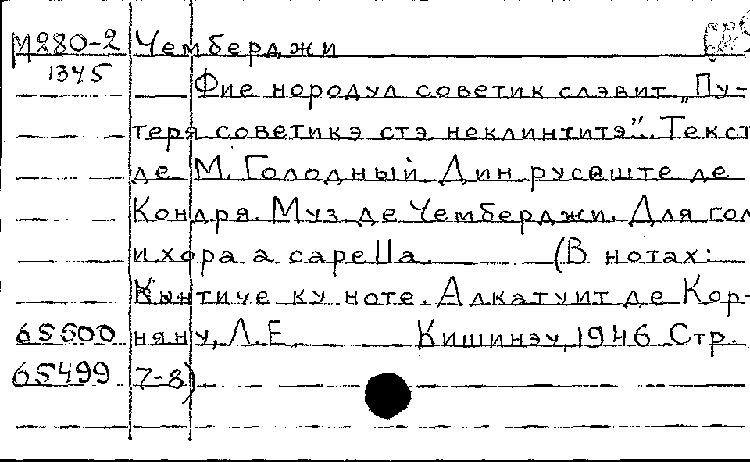 М280-2 Чемберджи
1345
Фие нородул советик слэвит „Пу-
теря советикэ стэ неклинтитэ". Текст
де М. Голодный Дин русеште де
Кондря. Муз де Чемберджи. Для гол
и хора a capella. (В нотах:
Кынтиче ку ноте. Алкатуит де Кор-
65500 няну, Л.Е Кишинэу, 1946 Стр.
65499 7-8)